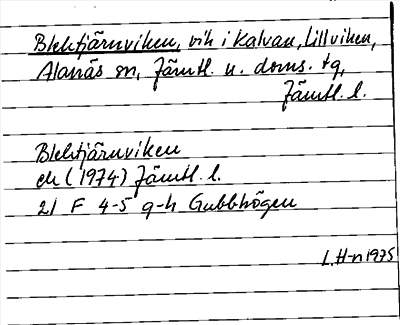 Blektjärnviken, vik i Kalvan, Lillviken,
Alanäs sn, Jämtl. n. doms. tg,
Jämtl. l.
Blektjärnviken
ek (1974) Jämtl. l.
21 F 4-5 g-h Gubbhögen
L.H-n 1975